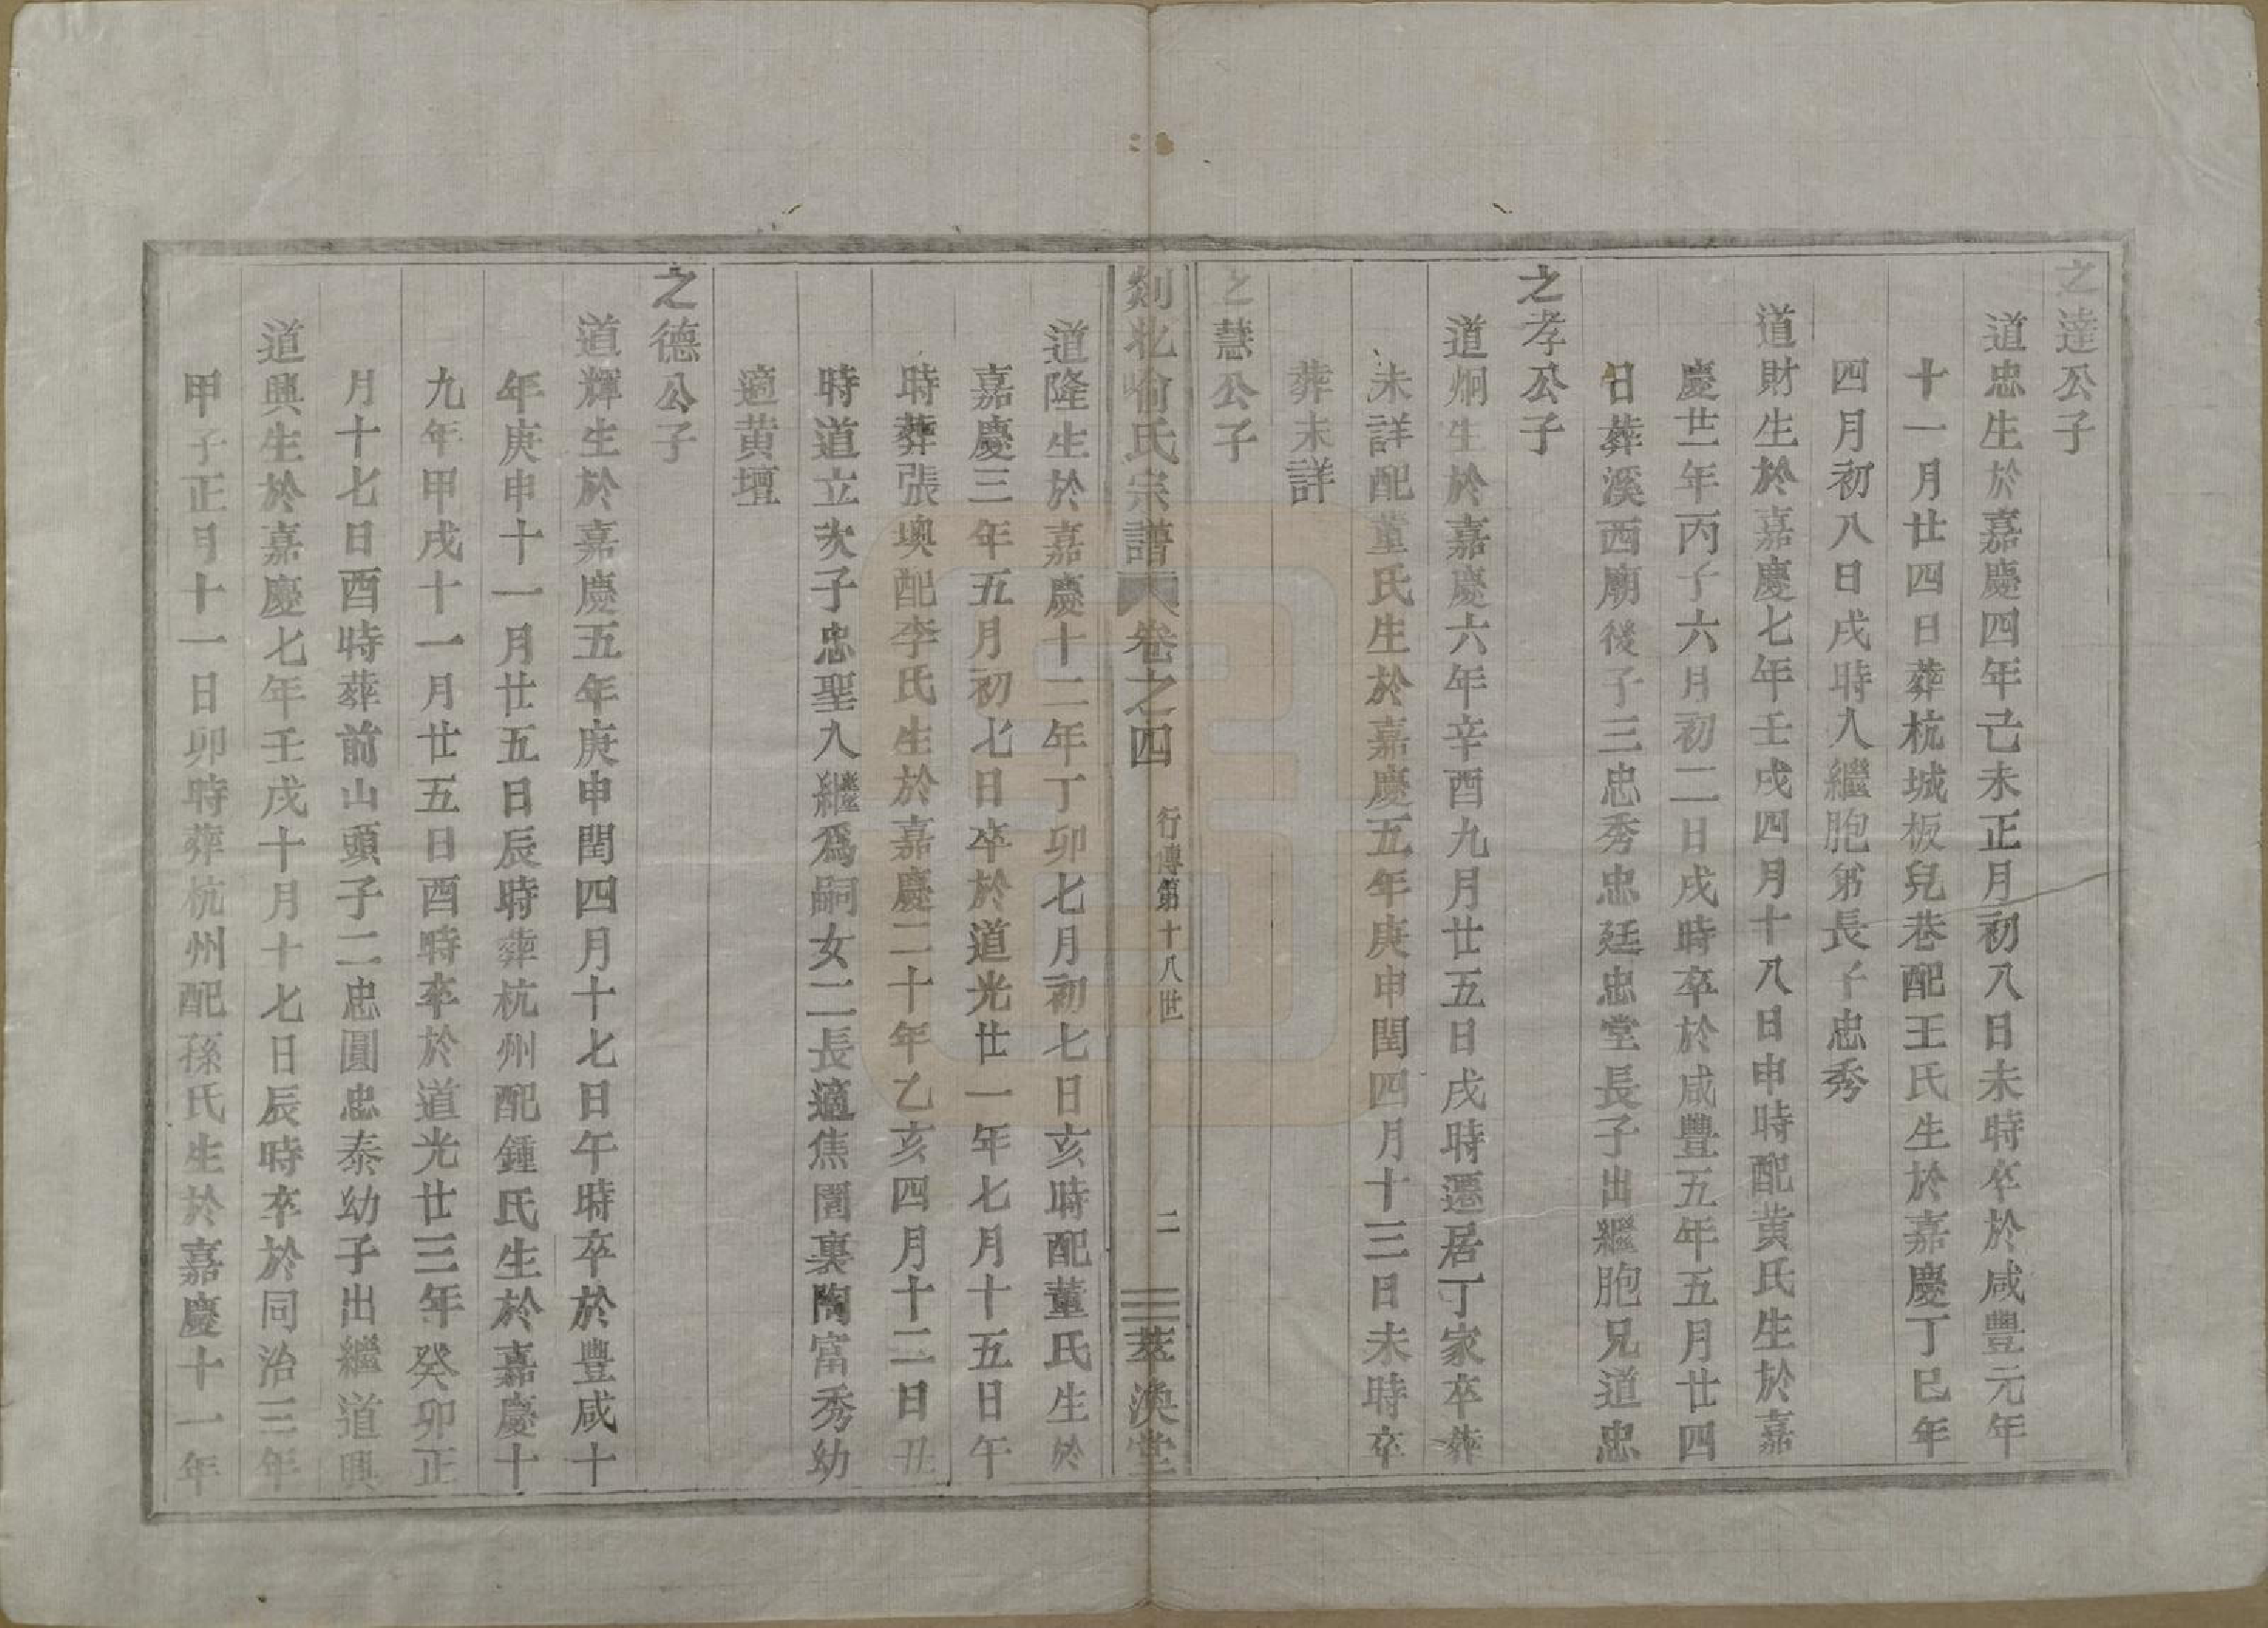 之達公子
道忠生於嘉慶四年己未正月初八日未時卒於咸豐元年
十一月廿四日葬杭城板兒巷配王氏生於嘉慶丁巳年
四月初八日戌時入繼胞弟長子忠秀
道財生於嘉慶七年壬戌四月十八日申時配黄氏生於嘉
慶廿一年丙子六月初二日戌時卒於咸豐五年五月廿四
日葬溪西廟後子三忠秀忠廷忠堂長子出繼胞兄道忠
之孝公子
道炯生於嘉慶六年辛酉九月廿五日戌時遷居丁家卒葬
未詳配董氏生於嘉慶五年庚申閏四月十三日未時卒
葬未詳
之慧公子
剡北喻氏宗譜 卷之四 行傳第十八世 二 萃渙堂
道隆生於嘉慶十二年丁卯七月初七日亥時配董氏生於
嘉慶三年五月初七日卒於道光廿一年七月十五日午
時葬張墺配李氏生於嘉慶二十年乙亥四月十二日丑
時道立次子忠聖入繼爲嗣女二長適焦闇裏陶富秀幼
適黄壇
之德公子
道輝生於嘉慶五年庚申閏四月十七日午時卒於豊咸十
年庚申十一月廿五日辰時葬杭州配鍾氏生於嘉慶十
九年甲戌十一月廿五日酉時卒於道光廿三年癸卯正
月十七日酉時葬前山頭子二忠圓忠泰幼子出繼道興
道興生於嘉慶七年壬戌十月十七日辰時卒於同治三年
甲子正月十一日卯時葬杭州配孫氏生於嘉慶十一年